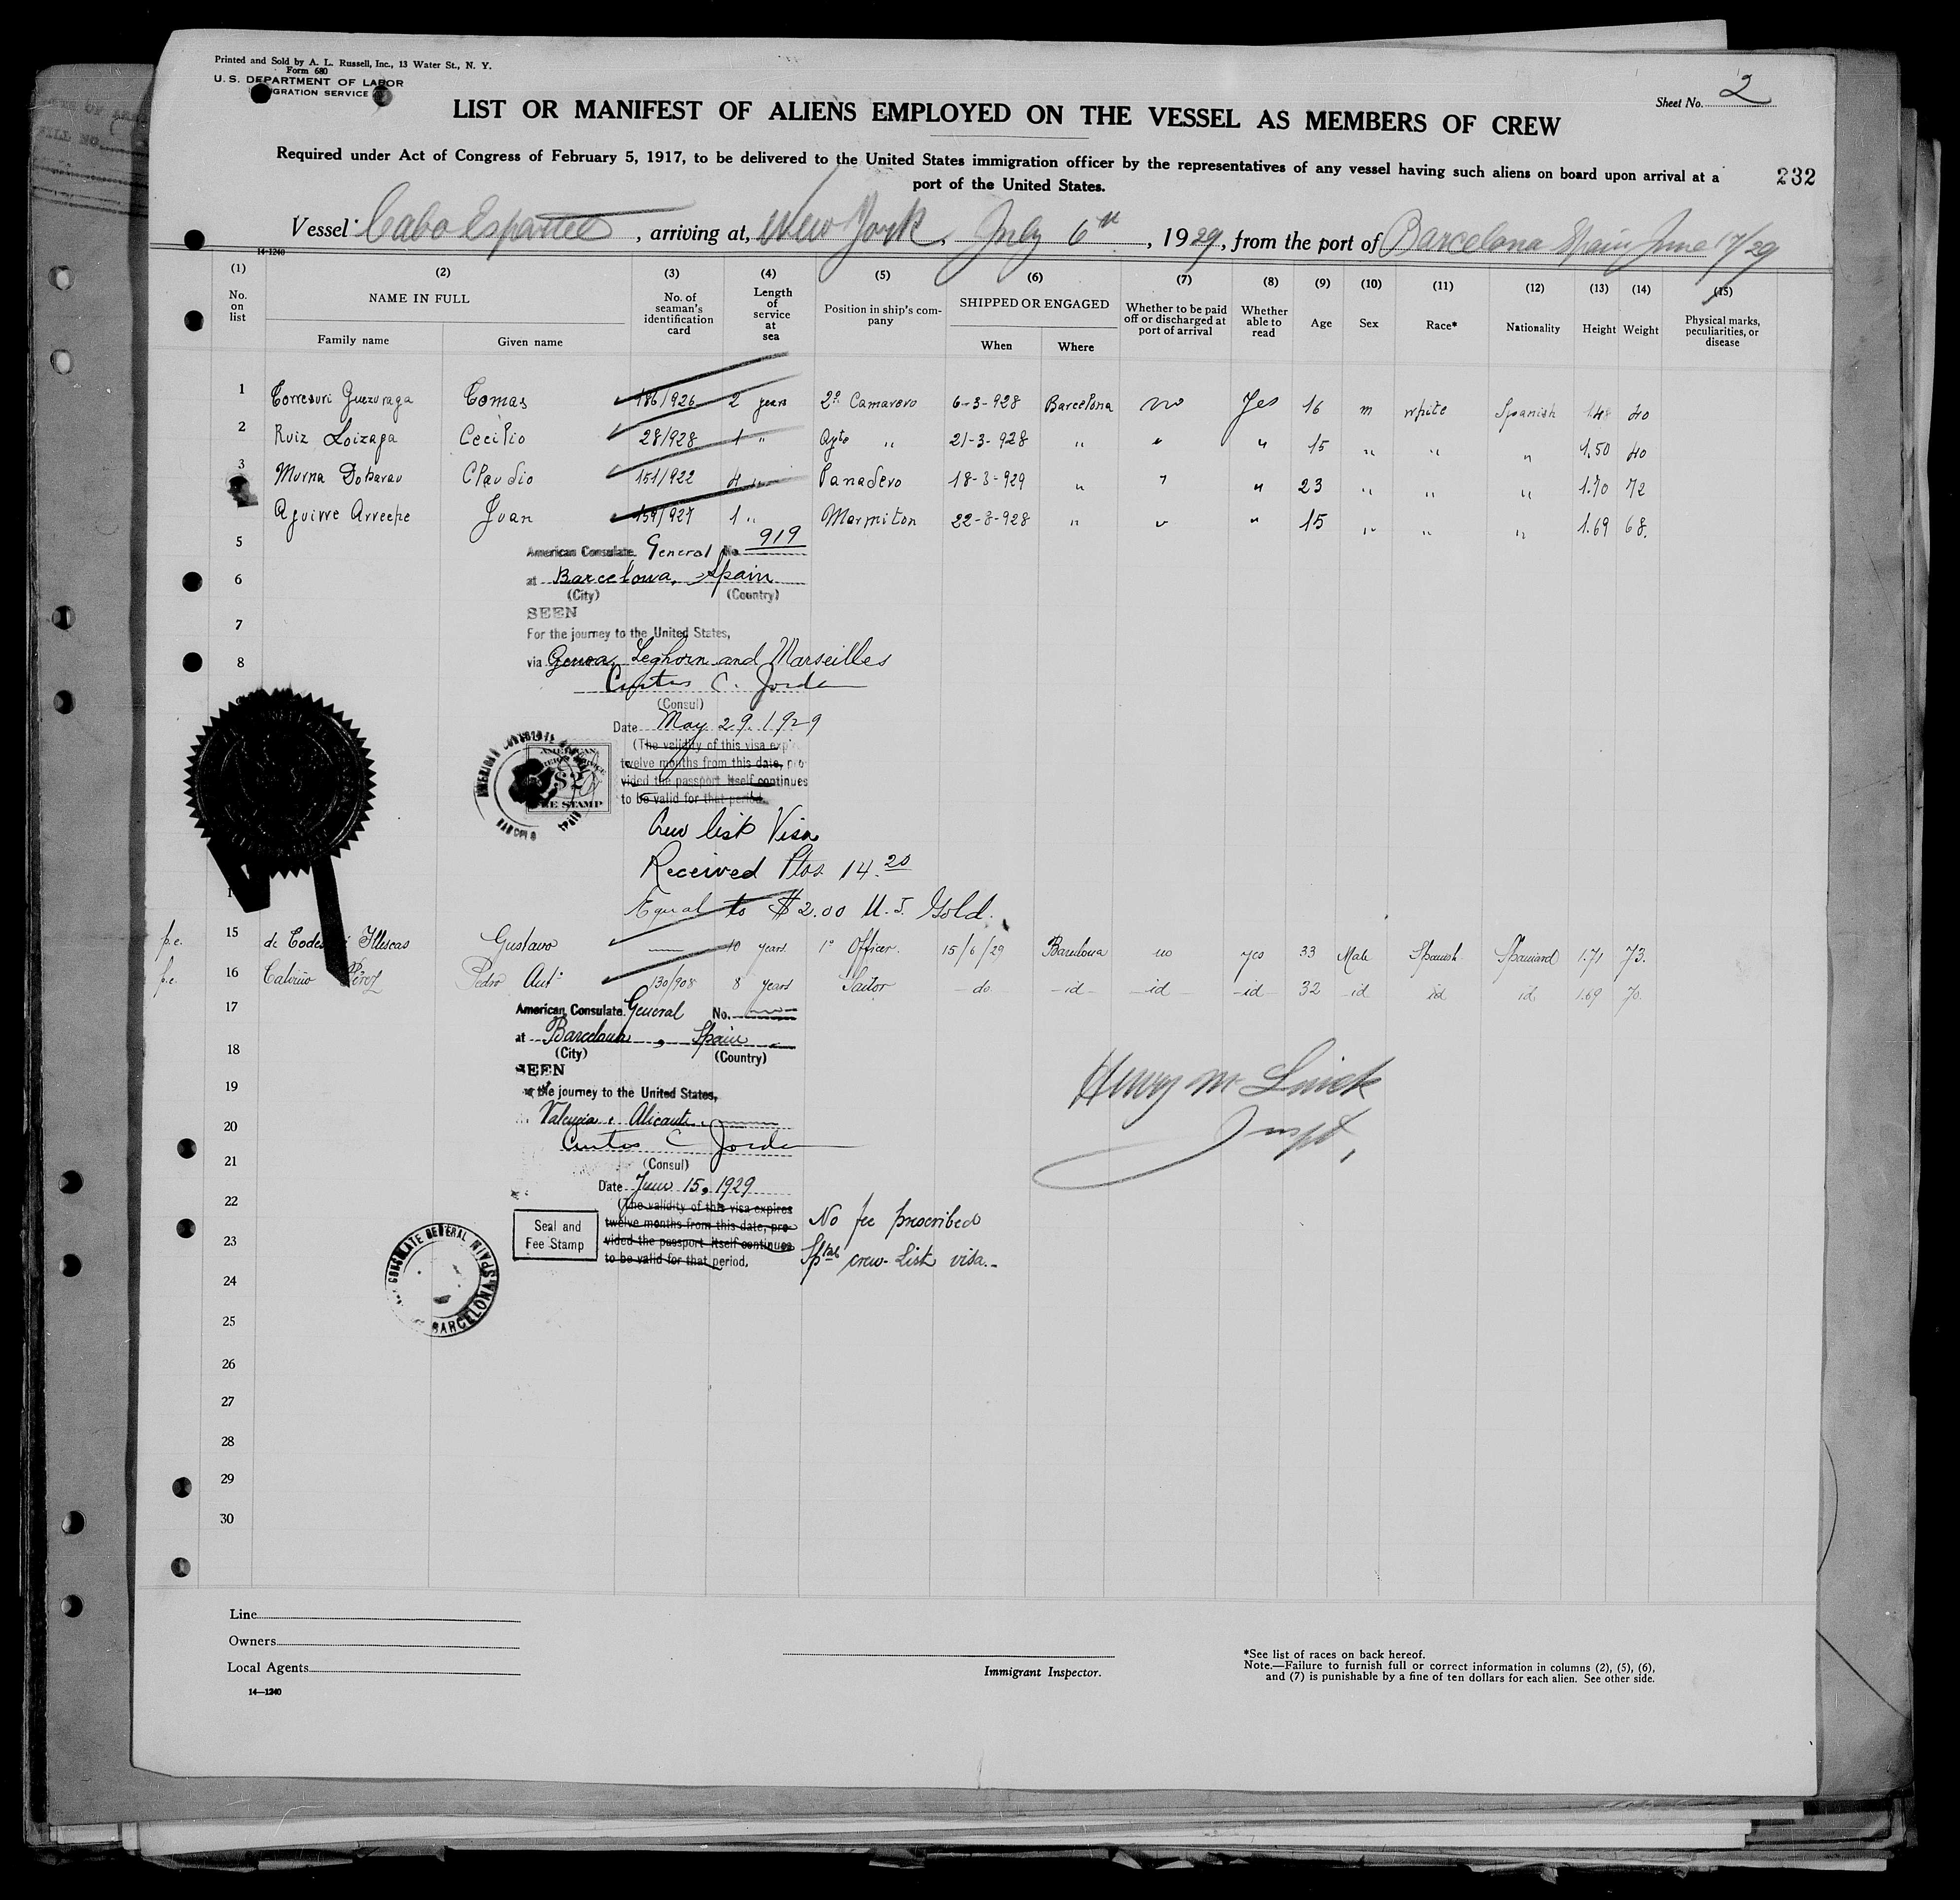 Printed and Sold by A. L. Russell, Inc., 13 Water St., N. Y.
Form 680
U. S. DEPARTMENT OF LABOR
IGRATION SERVICE
Sheet No. 2
LIST OR MANIFEST OF ALIENS EMPLOYED ON THE VESSEL AS MEMBERS OF CREW
Required under Act of Congress of February 5, 1917, to be delivered to the United States immigration officer by the representatives of any vessel having such aliens on board upon arrival at a
port of the United States.
232
Vessel Cabo Espartel, arriving at, New York, July 6th, 1929, from the port of Barcelona Spain June 17/29
14-1240
(1) (2) (3) (4) (5) (6) (7) (8) (9) (10) (11) (12) (13) (14) (15)
No. on list NAME IN FULL Family name Given name No. of seaman's identification card Length of service at sea Position in ship's company SHIPPED OR ENGAGED When Where Whether to be paid off or discharged at port of arrival Whether able to read Age Sex Race* Nationality Height Weight Physical marks, peculiarities, or disease
1 Tomas 186/926 2 years 2º Camarero 6-3-928 Barcelona no Yes 16 m white Spanish 1.48 40
2 Ruiz Loizaga Cecilio 28/928 1 " Ayte " 21-3-928 " " " 15 " " " 1.50 40
3 Claudio 151/922 4 " Panadero 18-3-929 " " " 23 " " " 1.70 72
Aguirre Juan 159/927 1 " Marmiton 22-8-928 " " " 15 " " " 1.69 68.
5
American Consulate General No. 919
6
at Barcelona, Spain
(City) (Country)
SEEN
7
For the journey to the United States,
8
via Genoa, Leghorn and Marseilles
Curtis C. Jordan
(Consul)
Date May 29. 1929
(The validity of this visa expi
twelve months from this date, pro-
vided the passport itself continues
to be valid for that period.
AMERICAN
$2
FEE STAMP
Crew list Visa
Received Ptas. 14.20
Equal to $2.00 U.S. Gold.
p.c. 15 de Illescas Gustavo 10 years 1º Officer. 15/6/29 Barcelona no yes 33 Male Spanish Spaniard 1.71 73.
p.c. 16 Pérez Pedro Antº 130/908 8 years Sailor do. id id id 32 id id id 1.69 70.
17
American Consulate General No.
at Barcelona, Spain
18
(City) (Country)
SEEN
19
the journey to the United States,
Henry M. 
Valencia, Alicante
20
Inspt.
Curtis C Jordan
21
(Consul)
Date June 15, 1929
22
(The validity of this visa expires
twelve months from this date, pro-
vided the passport itself continues
to be valid for that period.
Seal and
Fee Stamp
No fee prescribed
crew-List visa.-
23
CONSULATE GENERAL
BARCELONA, SPAIN
24
25
26
27
28
29
30
Line
Owners
Local Agents
14—1240
Immigrant Inspector.
*See list of races on back hereof.
Note.—Failure to furnish full or correct information in columns (2), (5), (6),
and (7) is punishable by a fine of ten dollars for each alien. See other side.